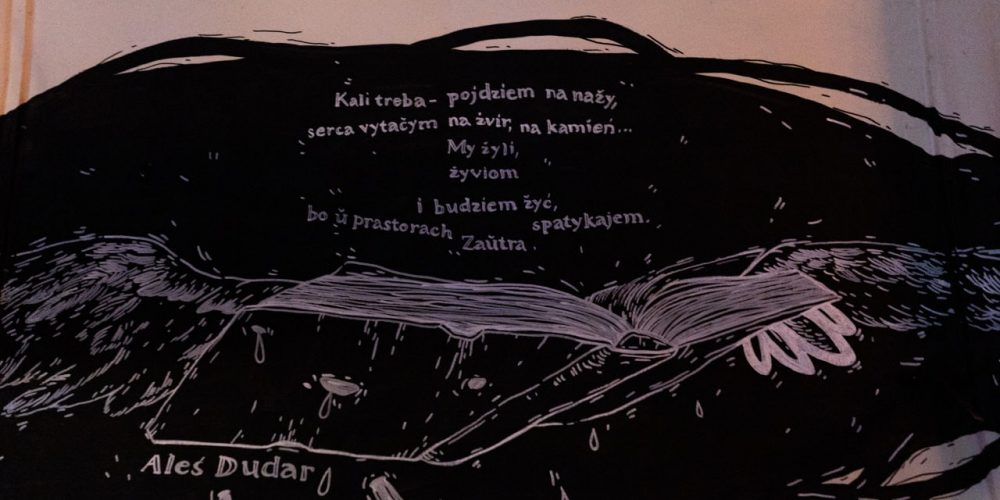 Kali treba- pojdziem na nažy,
serca vytačym na žvir, na kamień...
My žyli,
žyviom
i budziem žyć,
bo ŭ prastorach spatykajem.
Zaŭtra.
Aleś Dudar